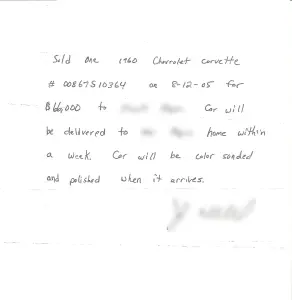 Sold one 1960 Chevrolet corvette
# 00867S10364 on 8-12-05 for
$66,000 to Car will
be delivered to home within
a week. Car will be color sanded
and polished when it arrives.